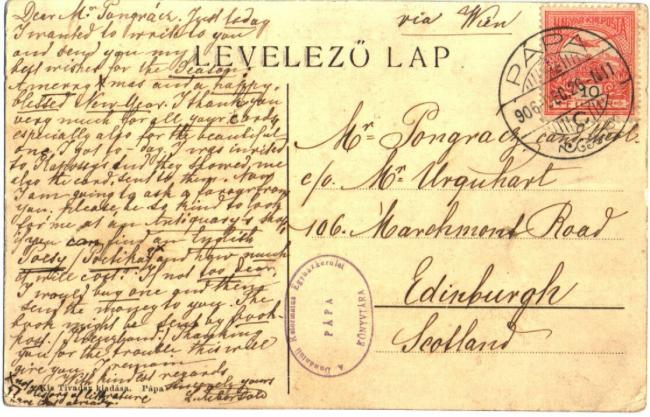 Dear Mr Pongrácz. Just today
I wanted to write to you
and send you my
best wishes for the Season.
A merry Xmas and a happy,
blessed New Year. I thank you
very much for all your cards,
especially also for the beautiful
one, I got to-day. I was invited
to and they showed me
also the card, sent to them. Now
I am going to ask a favour from
you. Please, be so kind to look
for me at an Antiquary's shop
if you can find an English
Poesy /Poetika/ and how much
it will cost. If not too dear,
I would buy one and then
send the money to you. The
book might be sent by book-
post. Thanking
you for the trouble this will
give you, I remain
with kindest regards
sincerely yours
x not a
History of literature
I have that already.
via Wien
LEVELEZŐ LAP
MAGYAR KIR. POSTA
10
PÁPA
906
Mr Pongrácz
c/o. Mr Urquhart
106. Marchmont Road
Edinburgh
Scotland
A Dunántúli Református Egyházkerület
PÁPA
KÖNYVTÁRA
Kis Tivadar kiadása. Pápa.